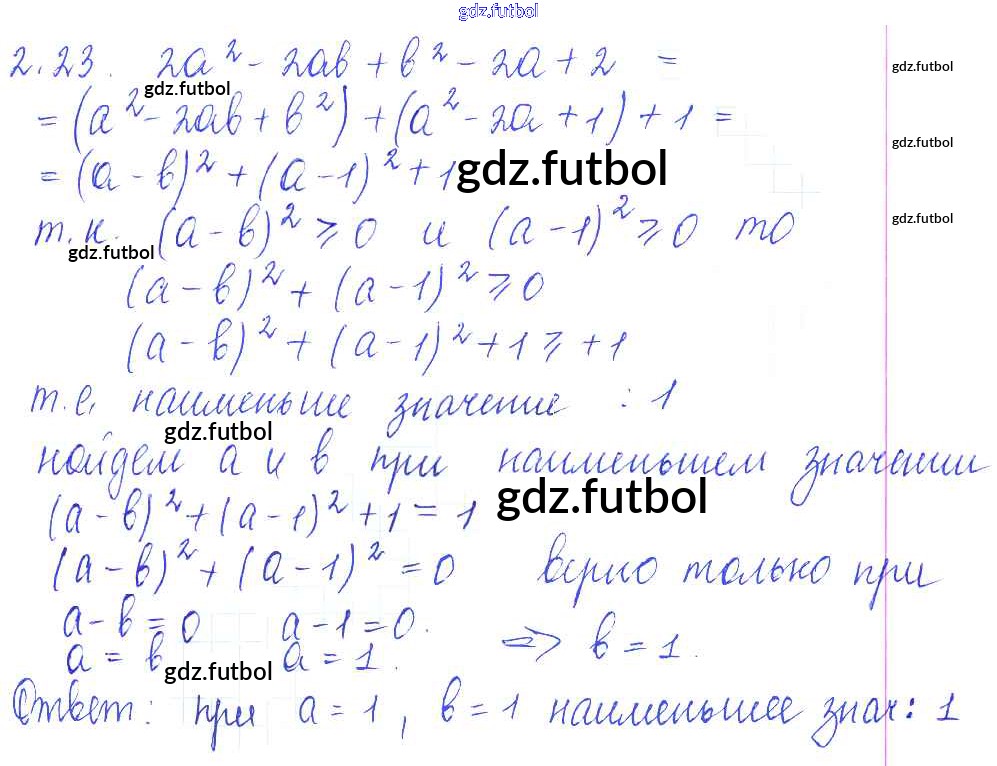 gdz.futbol
2.23. 2a² - 2ab + b² - 2a + 2 =
gdz.futbol
gdz.futbol
= (a² - 2ab + b²) + (a² - 2a + 1) + 1 =
gdz.futbol
= (a - b)² + (a - 1)² + 1
gdz.futbol
т.к. (a - b)² ⩾ 0 и (a - 1)² ⩾ 0 то
gdz.futbol
gdz.futbol
(a - b)² + (a - 1)² ⩾ 0
(a - b)² + (a - 1)² + 1 ⩾ +1
т.е. наименьше значение : 1
gdz.futbol
найдем a и b при наименьшем значении
gdz.futbol
(a - b)² + (a - 1)² + 1 = 1
(a - b)² + (a - 1)² = 0 верно только при
a - b = 0 a - 1 = 0.
a = b a = 1. => b = 1.
gdz.futbol
Ответ: при a = 1, b = 1 наименьшее знач: 1